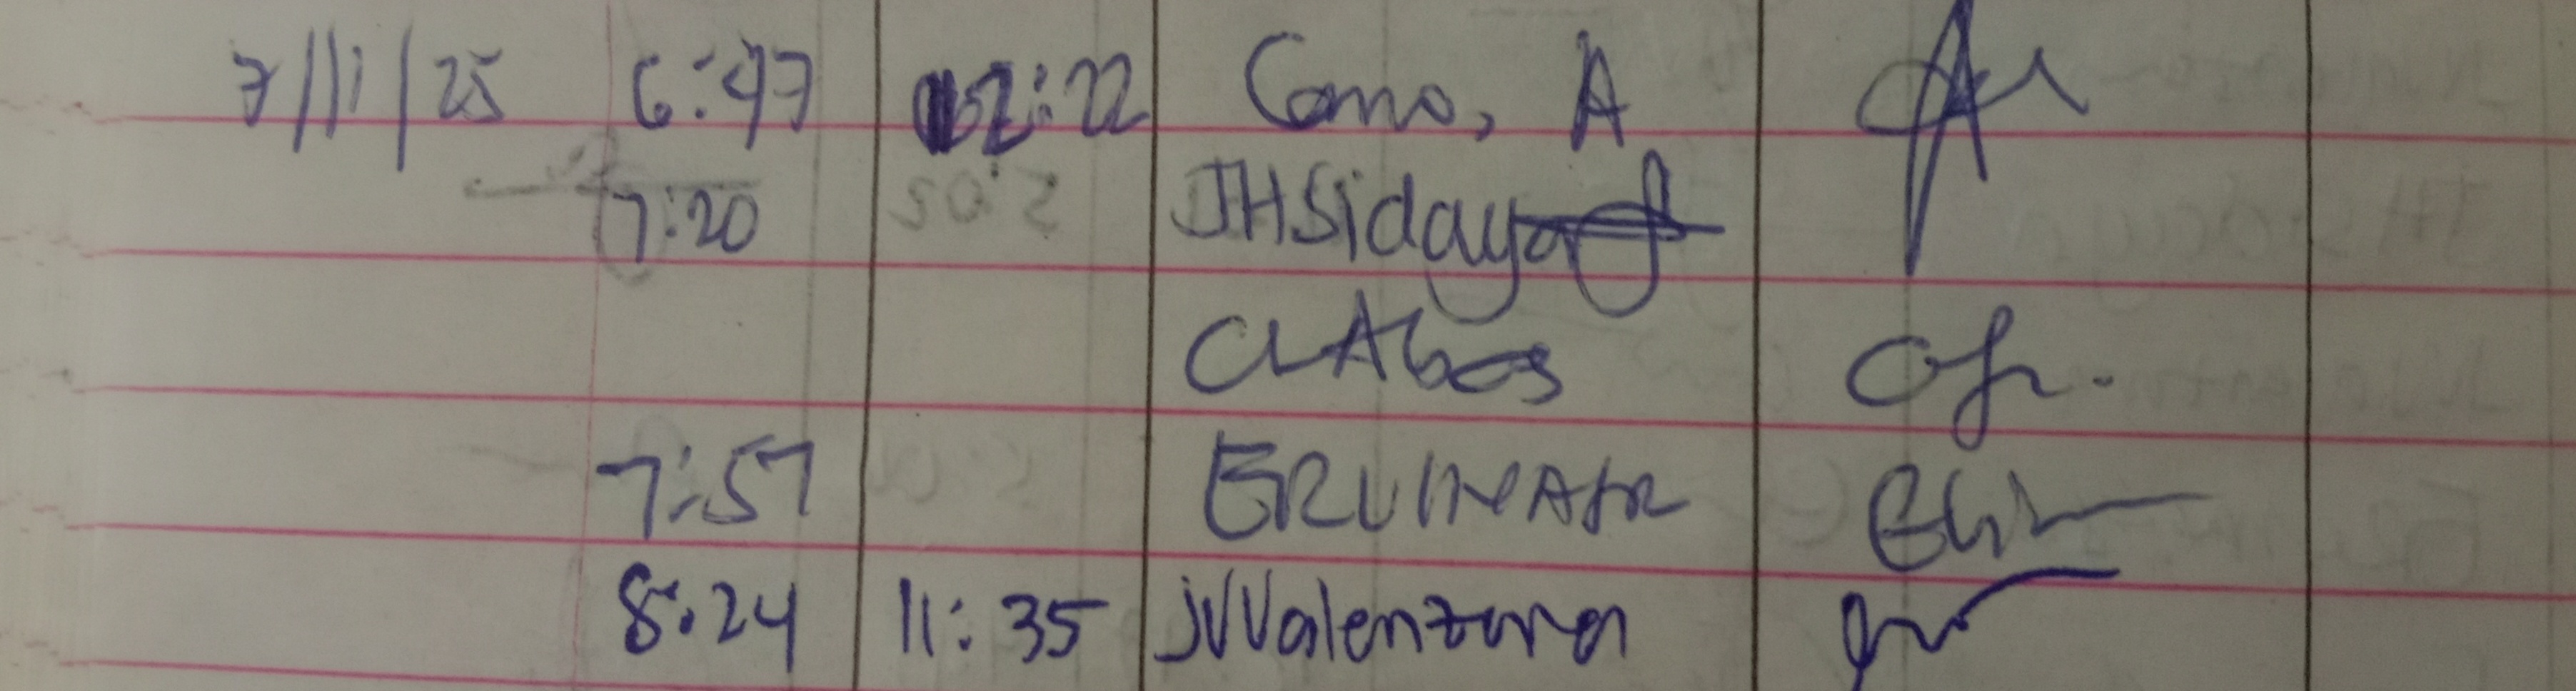 7/11/25 6:47 2:22 Cano, A
7:20 JHSiday
CLAbos
7:57
8:24 11:35 JVValenzuela